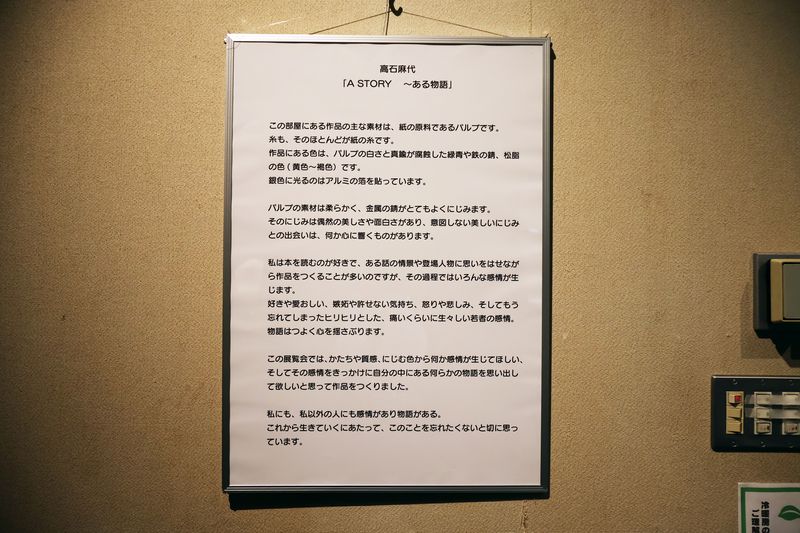 高石麻代
「A STORY　～ある物語」
この部屋にある作品の主な素材は、紙の原料であるパルプです。
糸も、そのほとんどが紙の糸です。
作品にある色は、パルプの白さと真鍮が腐蝕した緑青や鉄の錆、松脂
の色（黄色～褐色）です。
銀色に光るのはアルミの箔を貼っています。
パルプの素材は柔らかく、金属の錆がとてもよくにじみます。
そのにじみは偶然の美しさや面白さがあり、意図しない美しいにじみ
との出会いは、何か心に響くものがあります。
私は本を読むのが好きで、ある話の情景や登場人物に思いをはせなが
ら作品をつくることが多いのですが、その過程ではいろんな感情が生
じます。
好きや愛おしい、嫉妬や許せない気持ち、怒りや悲しみ、そしてもう
忘れてしまったヒリヒリとした、痛いくらいに生々しい若者の感情。
物語はつよく心を揺さぶります。
この展覧会では、かたちや質感、にじむ色から何か感情が生じてほしい、
そしてその感情をきっかけに自分の中にある何らかの物語を思い出し
て欲しいと思って作品をつくりました。
私にも、私以外の人にも感情があり物語がある。
これから生きていくにあたって、このことを忘れたくないと切に思っ
ています。
冷暖房の
ご理